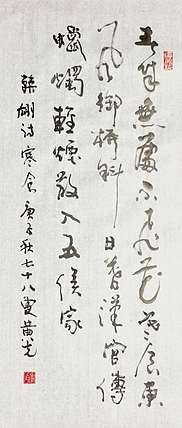 春城無處不飛花寒食東
風御柳斜日暮漢宮傳
蠟燭輕煙散入五侯家
韓翃詩寒食庚子秋七十八叟